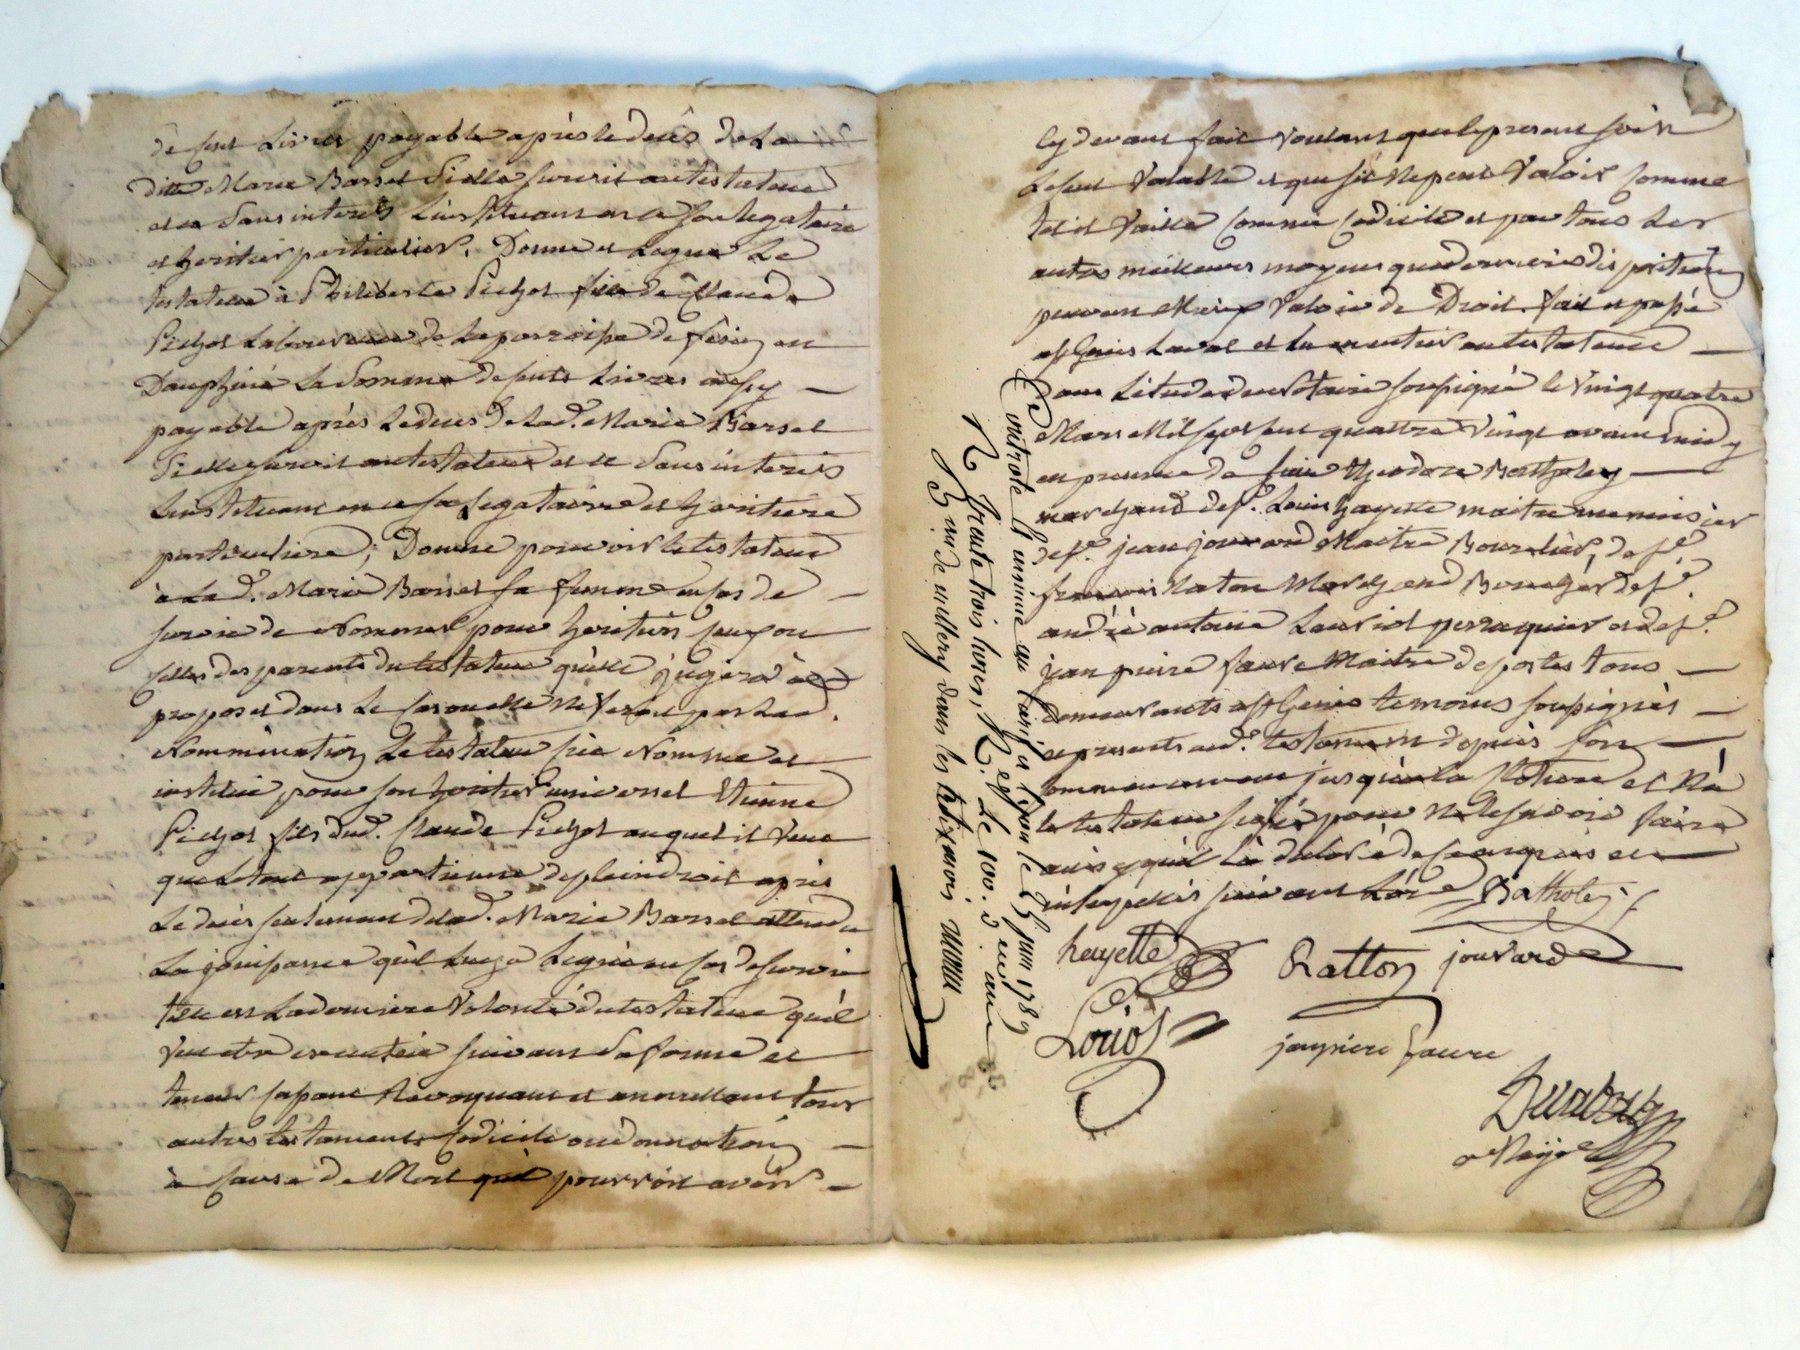 de cent Livres payable après le decès de La
ditte Marie Barset Si elle survit au testateur
et ce sans interets L'instituant en ce son legataire
et heritier particulier. Donne et Legue Le
testateur à Philiberte Pichot fille de Claude
Pichot Laboureur de La parroisse de en
Dauphiné La Somme de cents Livres aussy
payable après Le deces de Lad. Marie Barset
Si elle survit au testateur et ce Sans interets
Linstituant en ce sa Legataire et heritiere
particuliere; Donne pouvoir le testateur
à Lad. Marie Barset sa femme en cas de
survie de Nommer pour heritier ceux ou
celles des parents du testateur qu'elle jugera à
propos et dans Le cas ou elle ne feroit pas Lad.
Nommination Le testateur Nomme et
institue pour son heritier universel Etienne
Pichot fils dud. Claude Pichot auquel il veut
que Le tout appartienne de plein droit après
Le decès seulement de lad. Marie Barset attendu
La jouissance qu'il Luy a Leguée en cas de survie
telle est La derniere Volonté du testateur qu'il
veut etre executée suivant Sa forme et
teneur Revoquant et annullant tous
autres testaments Codicile ou donnation
à Cause de Mort qu'il pourroit avoir
Cy devant fait voulant que le present soit
Le seul Valable et que s'il ne peut Valoir Comme
tel il Vaille Comme Codicile et par tous Les
autres meilleurs moyens que dernieres dispositions
peuvent Mieux Valoir de Droit. fait et passé
à St Genis Laval et lu en entier au testateur
dans L'etude du Notaire soussigné le Vingt quatre
Mars Mil sept cent quattre Vingt avant midy
en presence de Sieur Theodore Bertholey
marchand de sr. Louis hayette maitre menuisier
de sr. jean jouvard Maitre Bourelier, de sr.
francois Raton Marchand Boucher de sr.
andré antoine Loriol perruquier et de sr.
jean pierre faure Maitre de postes tous
demeurants à St Genis temoins soussignés
et presents aud. testament depuis son
commencement jusqu'à la Cloture et N'a
le testateur signé pour ne le savoir faire
ainsy qu'il L'a declaré de ce enquis et
interpellé suivant L'ord. Batholey
hayette Ratton jouvard
Loriol jeanpiere faure
Contrôlé l'minute au tarif à Lyon le 25 juin 1789
R. Trente trois livres, R.